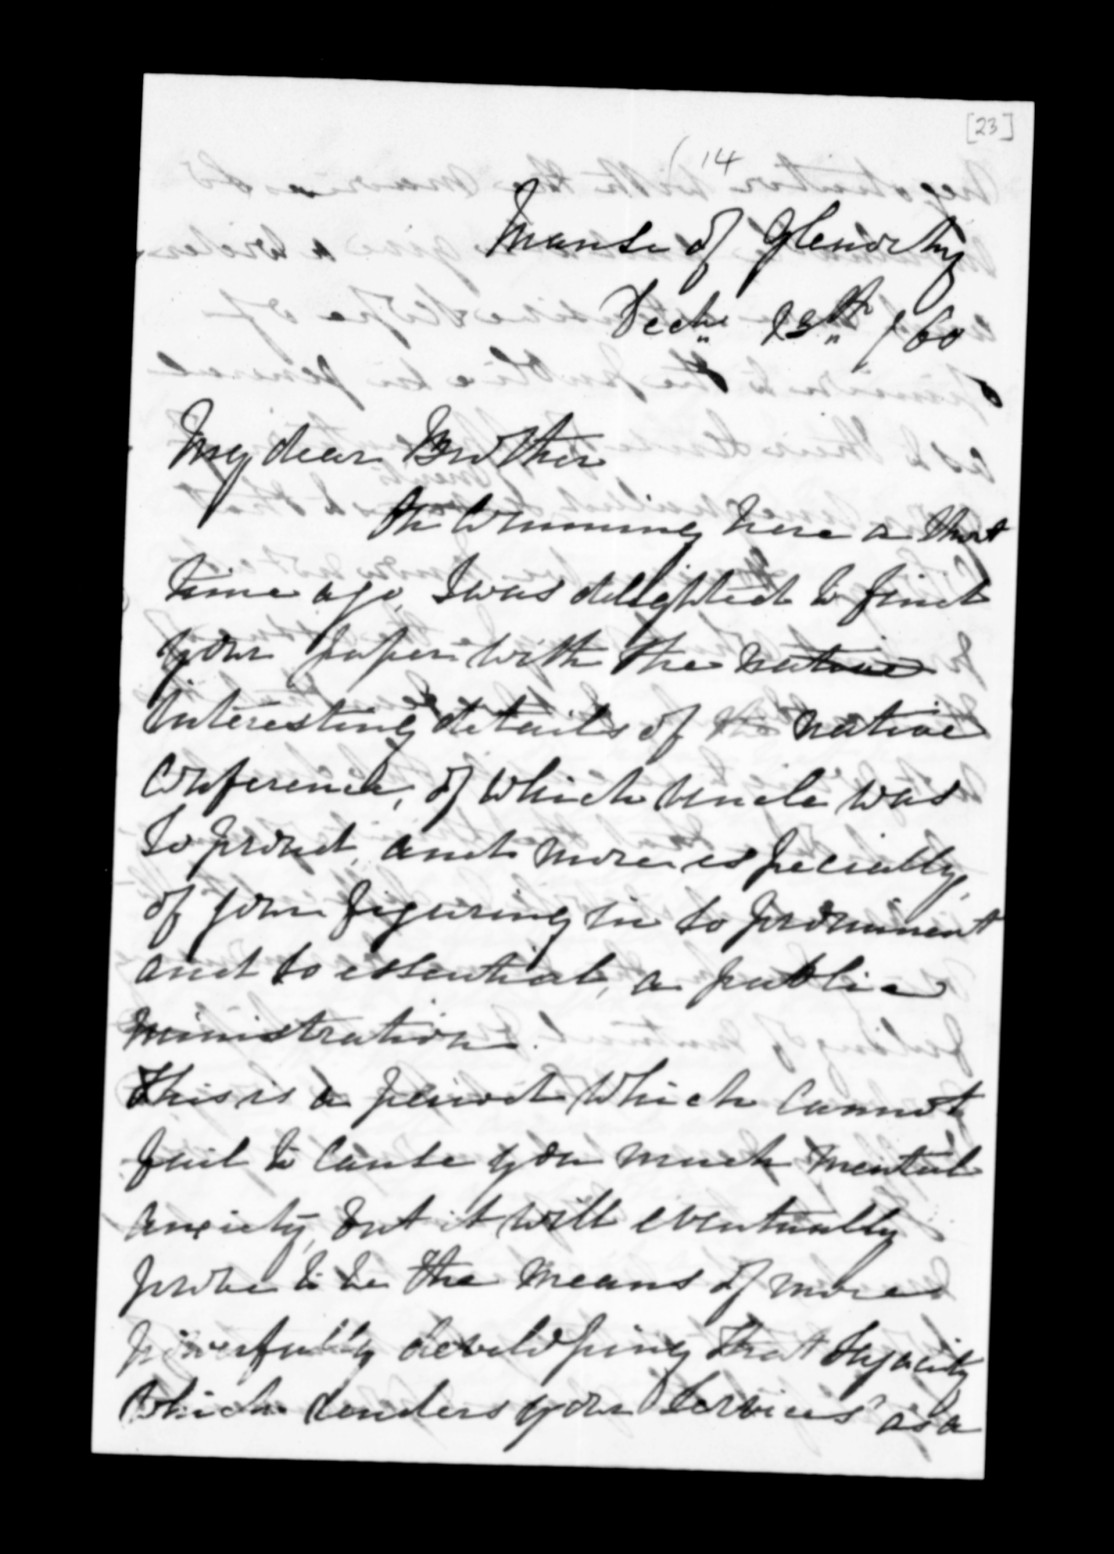 [23]
( 14
Manse of Glenorchy
Decr. 23th /60
My dear Brother
On Comming here a short
time ago, I was delighted to find
your paper with the native
interesting details of the native
Conference, of which Uncle was
so proud, and more especially,
of your figuring in so prominent
and so essential, a public
ministration.
This is a period which cannot
fail to cause you much mental
anxiety, but it will eventually
prove to be the means of more
powerfully developing that sagacity
which renders your services as a